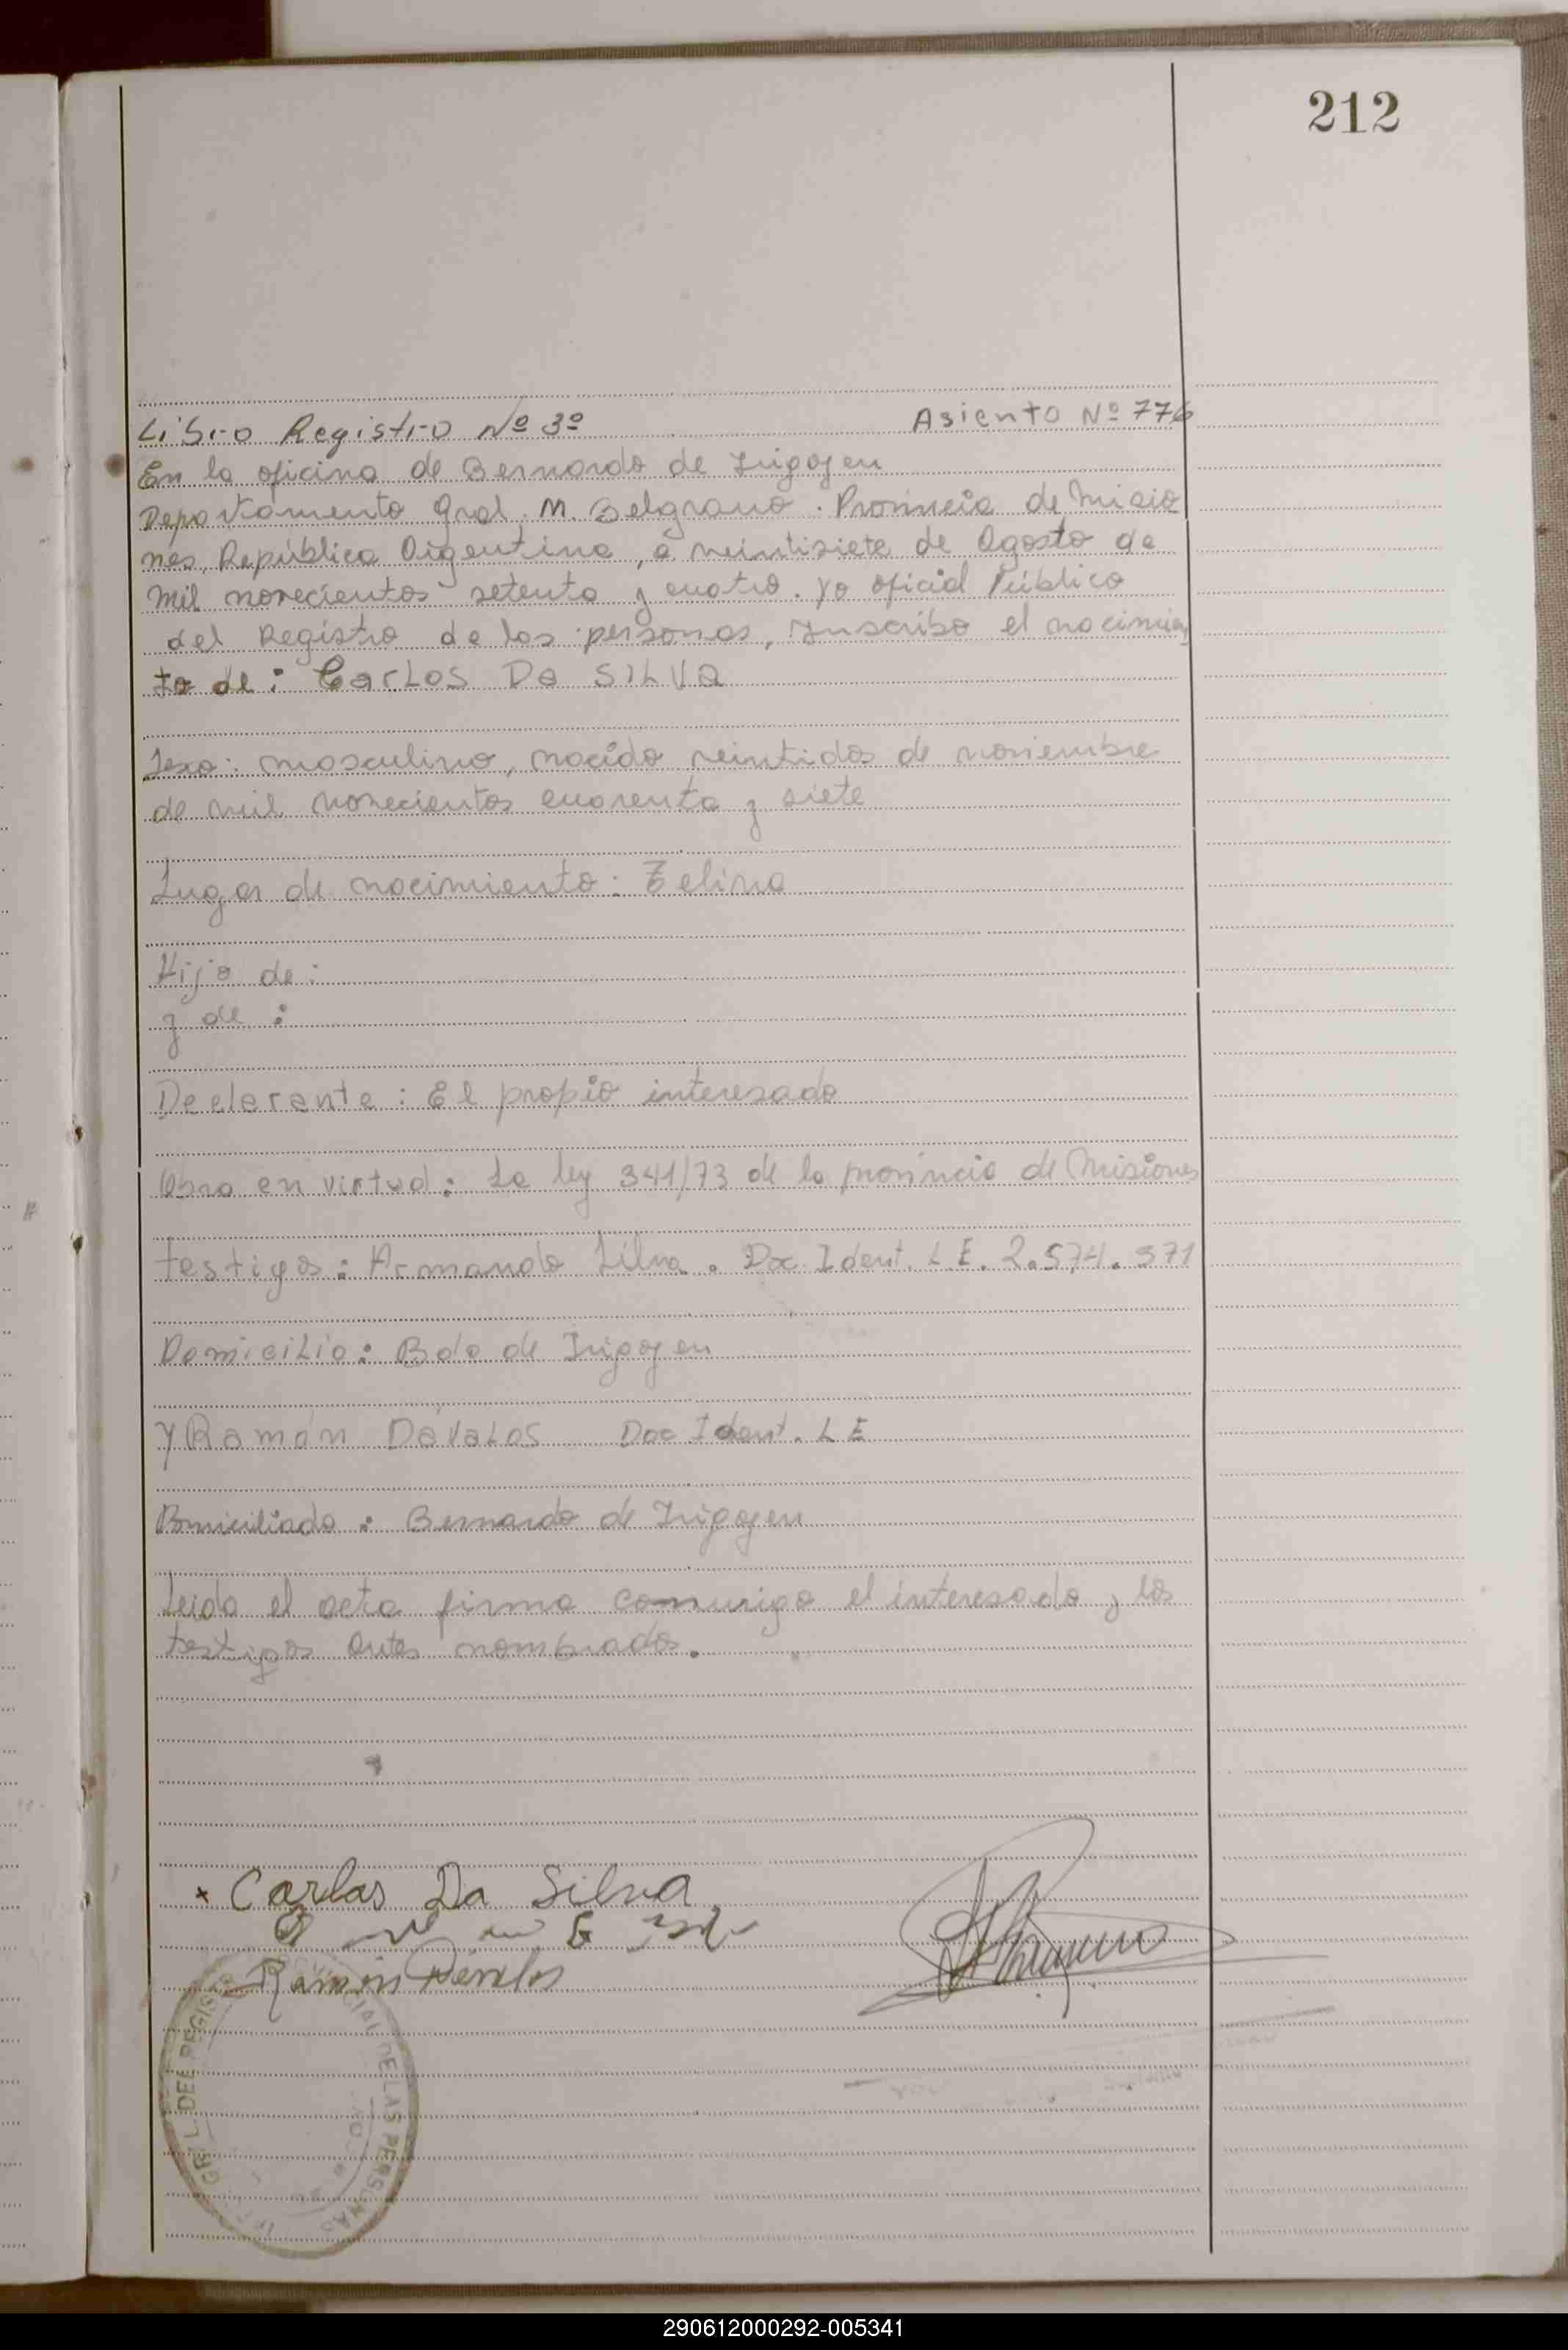 212
Libro Registro Nº 3º Asiento Nº 776
En la oficina de Bernardo de Irigoyen
Departamento Gral. M. Belgrano. Provincia de Misio
nes, República Argentina, a veintisiete de Agosto de
mil novecientos setenta y cuatro. yo oficial Público
del Registro de las personas, Inscribo el nacimien
to de: Carlos Da SILVA
Sexo: masculino, nacido veintidos de noviembre
de mil novecientos cuarenta y siete
Lugar de nacimiento:
Hijo de:
y de:
Declarante: El propio interesado
Obra en virtud: La ley 341/73 de la provincia de Misiones
testigos: Armando Silva. Doc Ident. L.E. 2.574.371
Domicilio: Bdo de Irigoyen
y Ramón Dávalos Doc Ident. L E
Domiciliado: Bernardo de Irigoyen
Leida el acta firma conmigo el interesado y los
testigos antes nombrados.
x Carlos Da Silva
Ramón Dávalos
GRAL. DEL REGIS DE LAS PERSONAS
290612000292-005341